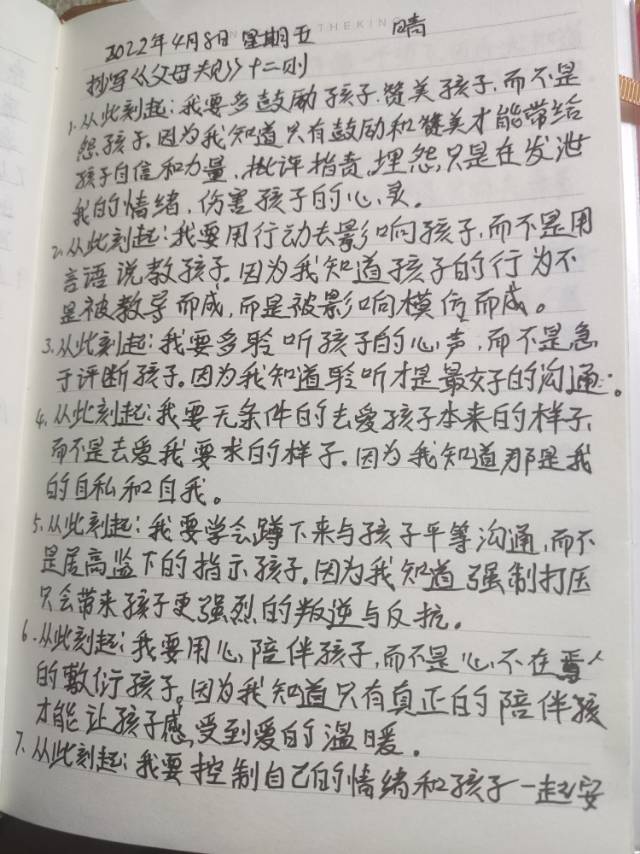 THEKIN
2022年4月8日 星期五 晴
抄写《父母规》十二则
1、从此刻起:我要多鼓励孩子.赞美孩子,而不是
怨孩子.因为我知道只有鼓励和赞美才能带给
孩子自信和力量,批评指责,埋怨,只是在发泄
我的情绪,伤害孩子的心灵。
2、从此刻起:我要用行动去影响孩子,而不是用
言语说教孩子.因为我知道孩子的行为不
是被教导而成,而是被影响模仿而成。
3、从此刻起:我要多聆听孩子的心声,而不是急
于评断孩子。因为我知道聆听才是最好的沟通。
4、从此刻起:我要无条件的去爱孩子本来的样子,
而不是去爱我要求的样子.因为我知道那是我
的自私和自我。
5、从此刻起:我要学会蹲下来与孩子平等沟通,而不
是居高监下的指示孩子.因为我知道强制打压
只会带来孩子更强烈的叛逆与反抗。
6、从此刻起:我要用心陪伴孩子,而不是心不在焉
的敷衍孩子。因为我知道只有真正的陪伴孩
才能让孩子感受到爱的温暖。
7、从此刻起:我要控制自己的情绪和孩子一起安